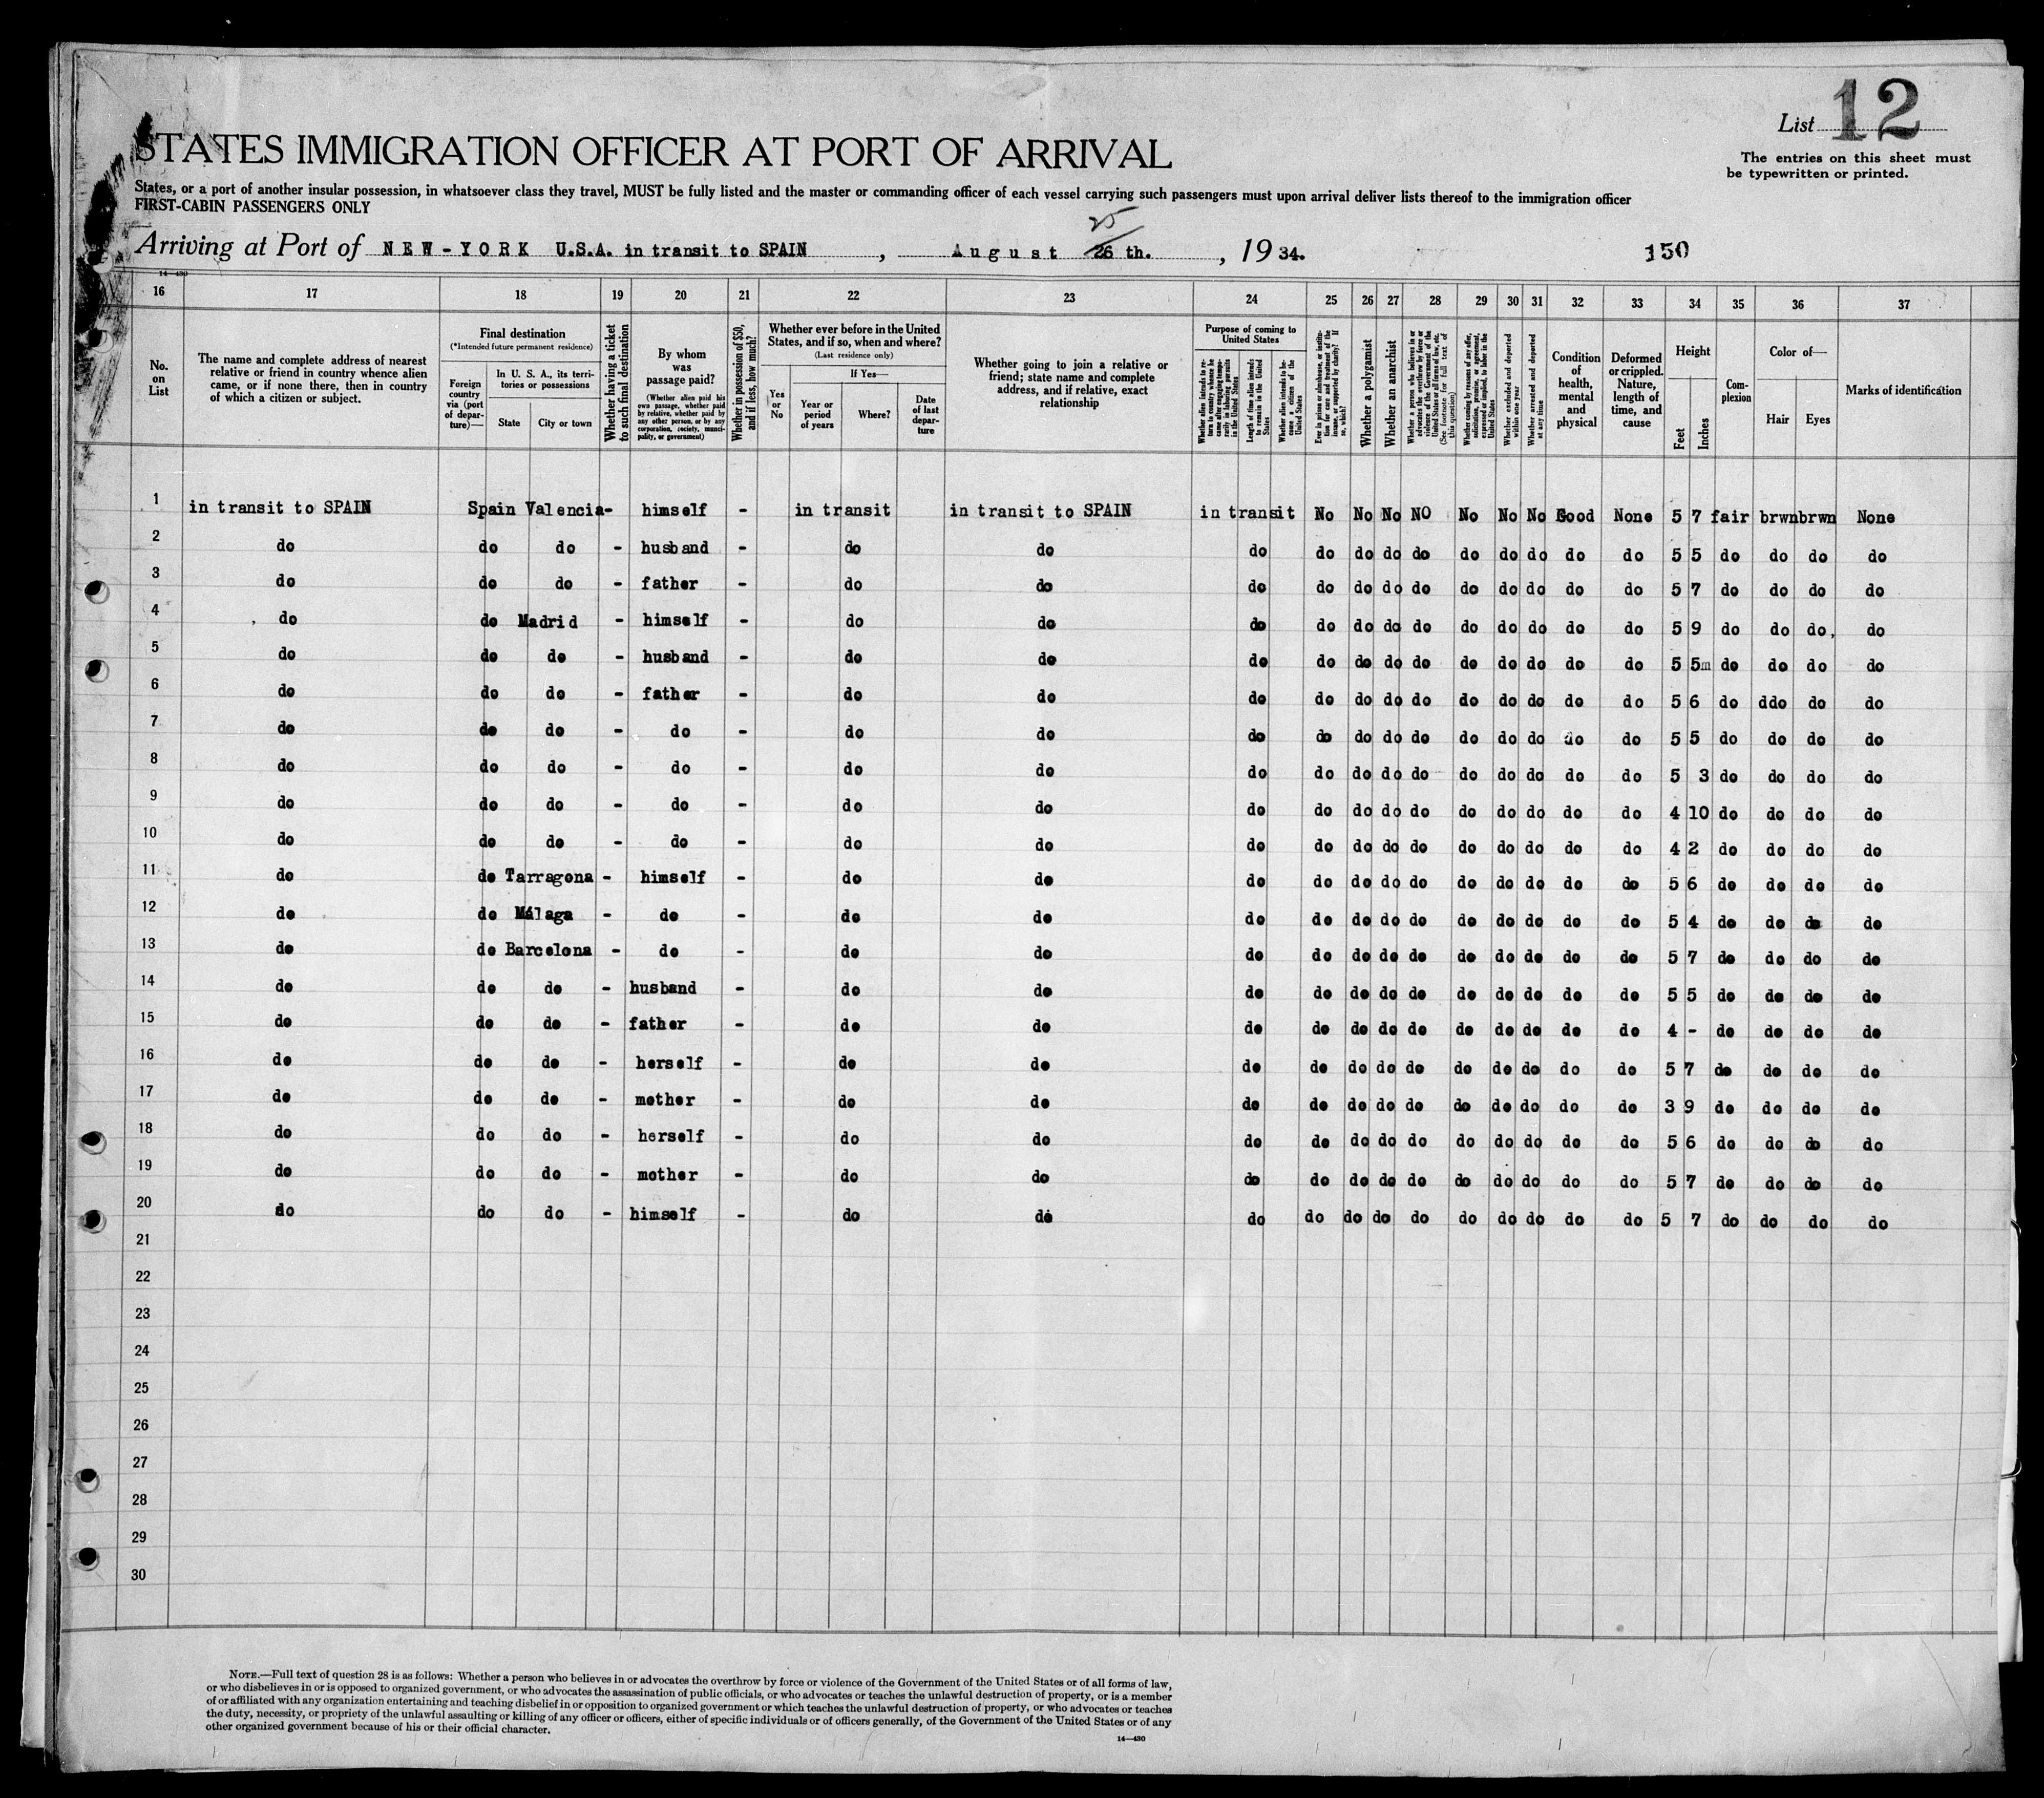 List 12
The entries on this sheet must
be typewritten or printed.
STATES IMMIGRATION OFFICER AT PORT OF ARRIVAL
States, or a port of another insular possession, in whatsoever class they travel, MUST be fully listed and the master or commanding officer of each vessel carrying such passengers must upon arrival deliver lists thereof to the immigration officer
FIRST-CABIN PASSENGERS ONLY
25
Arriving at Port of NEW-YORK U.S.A. in transit to SPAIN, August 26 th., 1934. 150
14—430
16 17 18 19 20 21 22 23 24 25 26 27 28 29 30 31 32 33 34 35 36 37
No. on List
The name and complete address of nearest relative or friend in country whence alien came, or if none there, then in country of which a citizen or subject.
Final destination
(*Intended future permanent residence)
Foreign country via (port of departure)—
In U. S. A., its territories or possessions
State
City or town
Whether having a ticket to such final destination
By whom was passage paid?
(Whether alien paid his own passage, whether paid by relative, whether paid by any other person, or by any corporation, society, municipality, or government)
Whether in possession of $50, and if less, how much?
Whether ever before in the United States, and if so, when and where?
(Last residence only)
Yes or No
If Yes—
Year or period of years
Where?
Date of last departure
Whether going to join a relative or friend; state name and complete address, and if relative, exact relationship
Purpose of coming to United States
Whether alien intends to return to country whence he came after engaging temporarily in laboring pursuits in the United States
Length of time alien intends to remain in the United States
Whether alien intends to become a citizen of the United States
Ever in prison or almshouse, or institution for care and treatment of the insane, or supported by charity? If so, which?
Whether a polygamist
Whether an anarchist
Whether a person who believes in or advocates the overthrow by force or violence of the Government of the United States or all forms of law, etc. (See footnote for full text of this question)
Whether coming by reasons of any offer, solicitation, promise, or agreement, expressed or implied, to labor in the United States
Whether excluded and deported within one year
Whether arrested and deported at any time
Condition of health, mental and physical
Deformed or crippled. Nature, length of time, and cause
Height
Feet
Inches
Complexion
Color of—
Hair
Eyes
Marks of identification
1 in transit to SPAIN Spain Valencia- himself - in transit in transit to SPAIN in transit No No No NO No No No Good None 5 7 fair brwn brwn None
2 do do do - husband - do do do do do do do do do do do do 5 5 do do do do
3 do do do - father - do do do do do do do do do do do do 5 7 do do do do
4 do do Madrid - himself - do do do do do do do do do do do do 5 9 do do do, do
5 do do do - husband - do do do do do do do do do do do do 5 5m do do do do
6 do do do - father - do do do do do do do do do do do do 5 6 do ddo do do
7 do do do - do - do do do do do do do do do do do do 5 5 do do do do
8 do do do - do - do do do do do do do do do do do do 5 3 do do do do
9 do do do - do - do do do do do do do do do do do do 4 10 do do do do
10 do do do - do - do do do do do do do do do do do do 4 2 do do do do
11 do do Tarragona - himself - do do do do do do do do do do do do 5 6 do do do do
12 do do Málaga - do - do do do do do do do do do do do do 5 4 do do do do
13 do do Barcelona - do - do do do do do do do do do do do do 5 7 do do do do
14 do do do - husband - do do do do do do do do do do do do 5 5 do do do do
15 do do do - father - do do do do do do do do do do do do 4 - do do do do
16 do do do - herself - do do do do do do do do do do do do 5 7 do do do do
17 do do do - mother - do do do do do do do do do do do do 3 9 do do do do
18 do do do - herself - do do do do do do do do do do do do 5 6 do do do do
19 do do do - mother - do do do do do do do do do do do do 5 7 do do do do
20 do do do - himself - do do do do do do do do do do do do 5 7 do do do do
21
22
23
24
25
26
27
28
29
30
NOTE.—Full text of question 28 is as follows: Whether a person who believes in or advocates the overthrow by force or violence of the Government of the United States or of all forms of law,
or who disbelieves in or is opposed to organized government, or who advocates the assassination of public officials, or who advocates or teaches the unlawful destruction of property, or is a member
of or affiliated with any organization entertaining and teaching disbelief in or opposition to organized government or which teaches the unlawful destruction of property, or who advocates or teaches
the duty, necessity, or propriety of the unlawful assaulting or killing of any officer or officers, either of specific individuals or of officers generally, of the Government of the United States or of any
other organized government because of his or their official character.
14—430